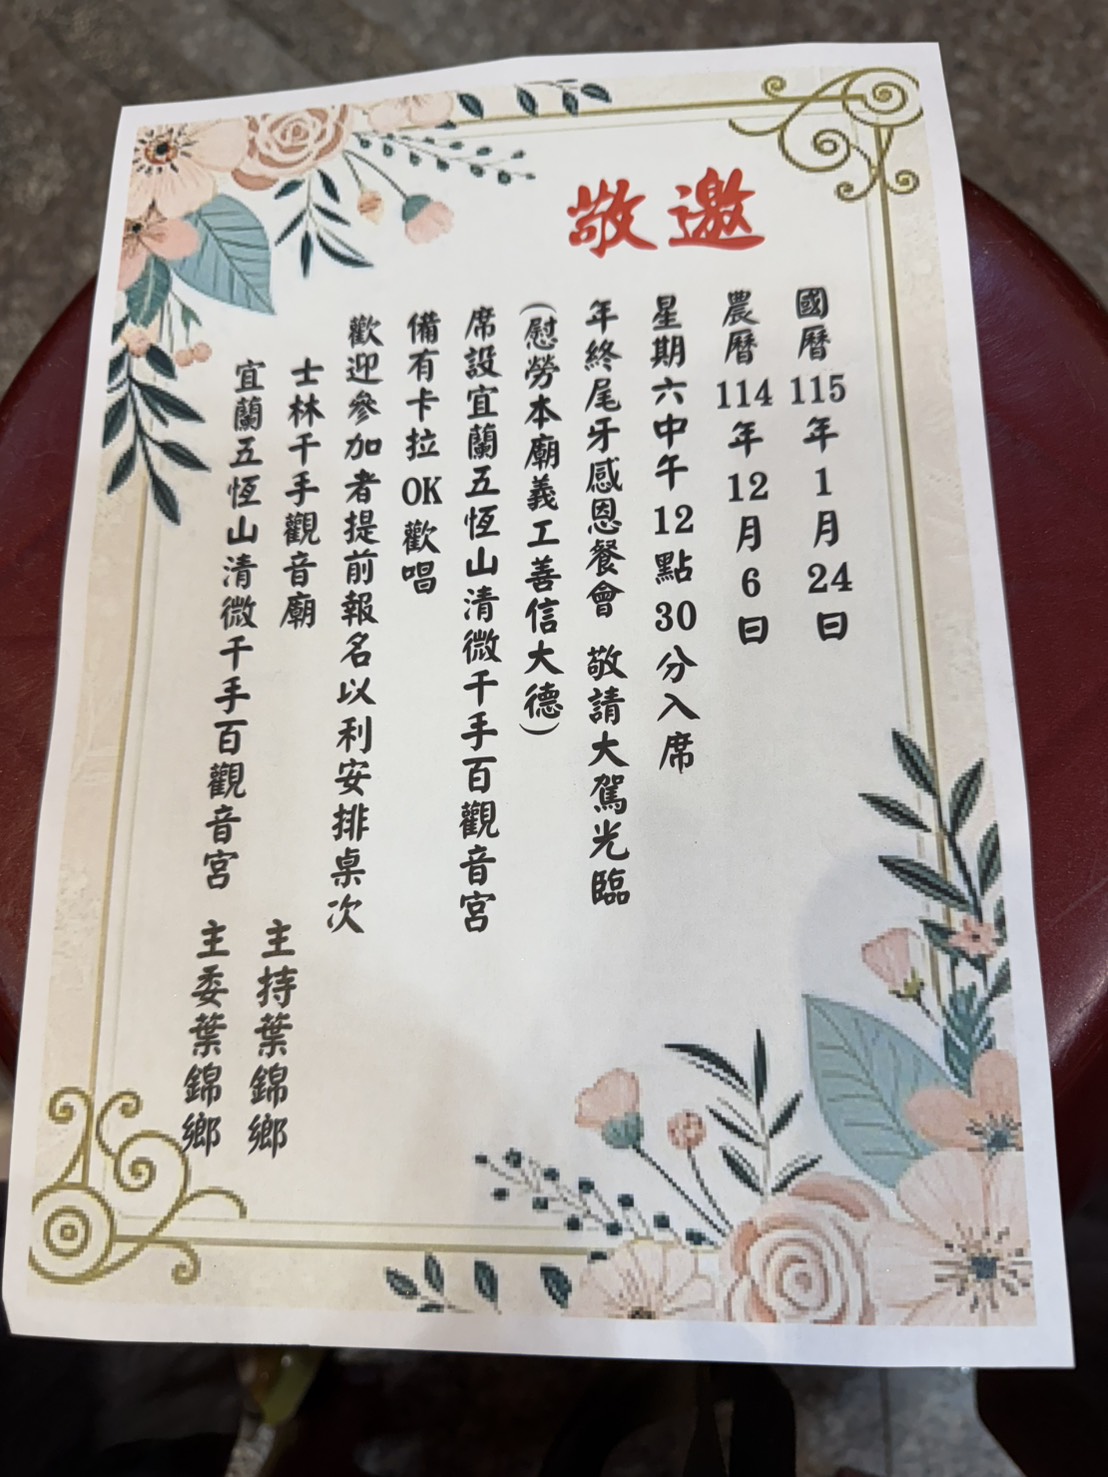 敬邀
國曆115年1月24日
農曆114年12月6日
星期六中午12點30分入席
年終尾牙感恩餐會 敬請大駕光臨
(慰勞本廟義工善信大德)
席設宜蘭五恆山清微千手百觀音宮
備有卡拉OK歡唱
歡迎參加者提前報名以利安排桌次
士林千手觀音廟 主持葉錦鄉
宜蘭五恆山清微千手百觀音宮 主委葉錦鄉